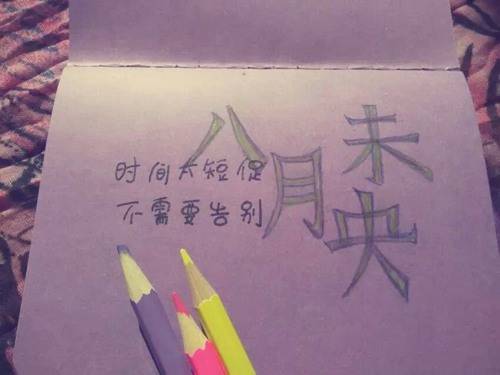 八月未央
时间太短促
不需要告别